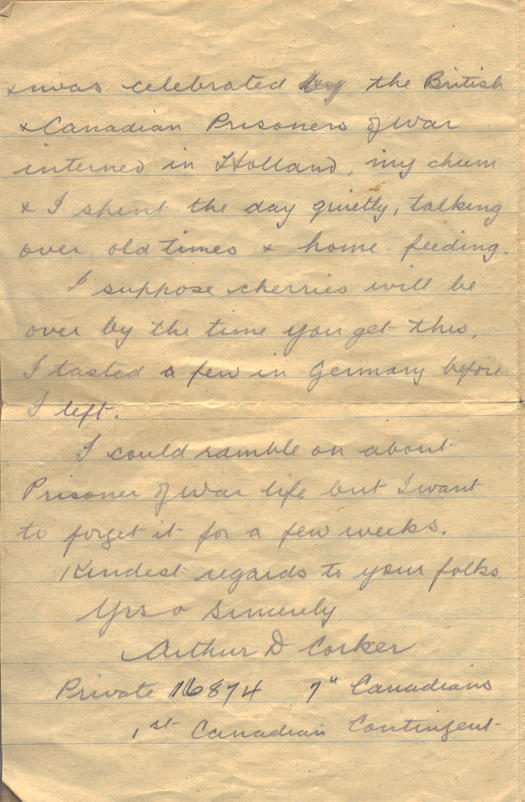 & was celebrated by the British
& Canadian Prisoners of War
interned in Holland, my chum
& I spent the day quietly, talking
over old times & home feeding.
I suppose cherries will be
over by the time you get this,
I tasted a few in Germany before
I left.
I could ramble on about
Prisoner of War life but I want
to forget it for a few weeks.
Kindest regards to your folks
Yrs v Sincerely
Arthur D Corker
Private 16874 7" Canadians
1st Canadian Contingent